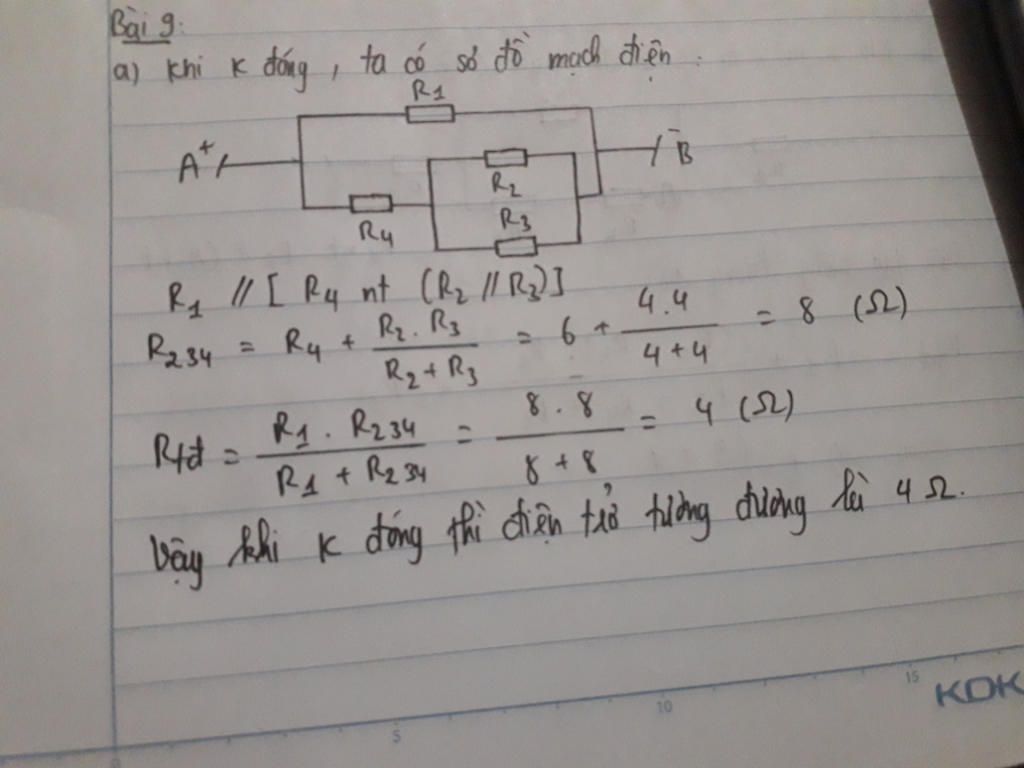 Bài 9:
a) Khi K đóng, ta có sơ đồ mạch điện:
R1
A+
B-
R2
R4
R3
R1 // [ R4 nt (R2 // R3)]
R234 = R4 + R2 . R3 / R2 + R3 = 6 + 4 . 4 / 4 + 4 = 8 (Ω)
Rtđ = R1 . R234 / R1 + R234 = 8 . 8 / 8 + 8 = 4 (Ω)
Vậy khi K đóng thì điện trở tương đương là 4 Ω.
0 5 10 15 KOK